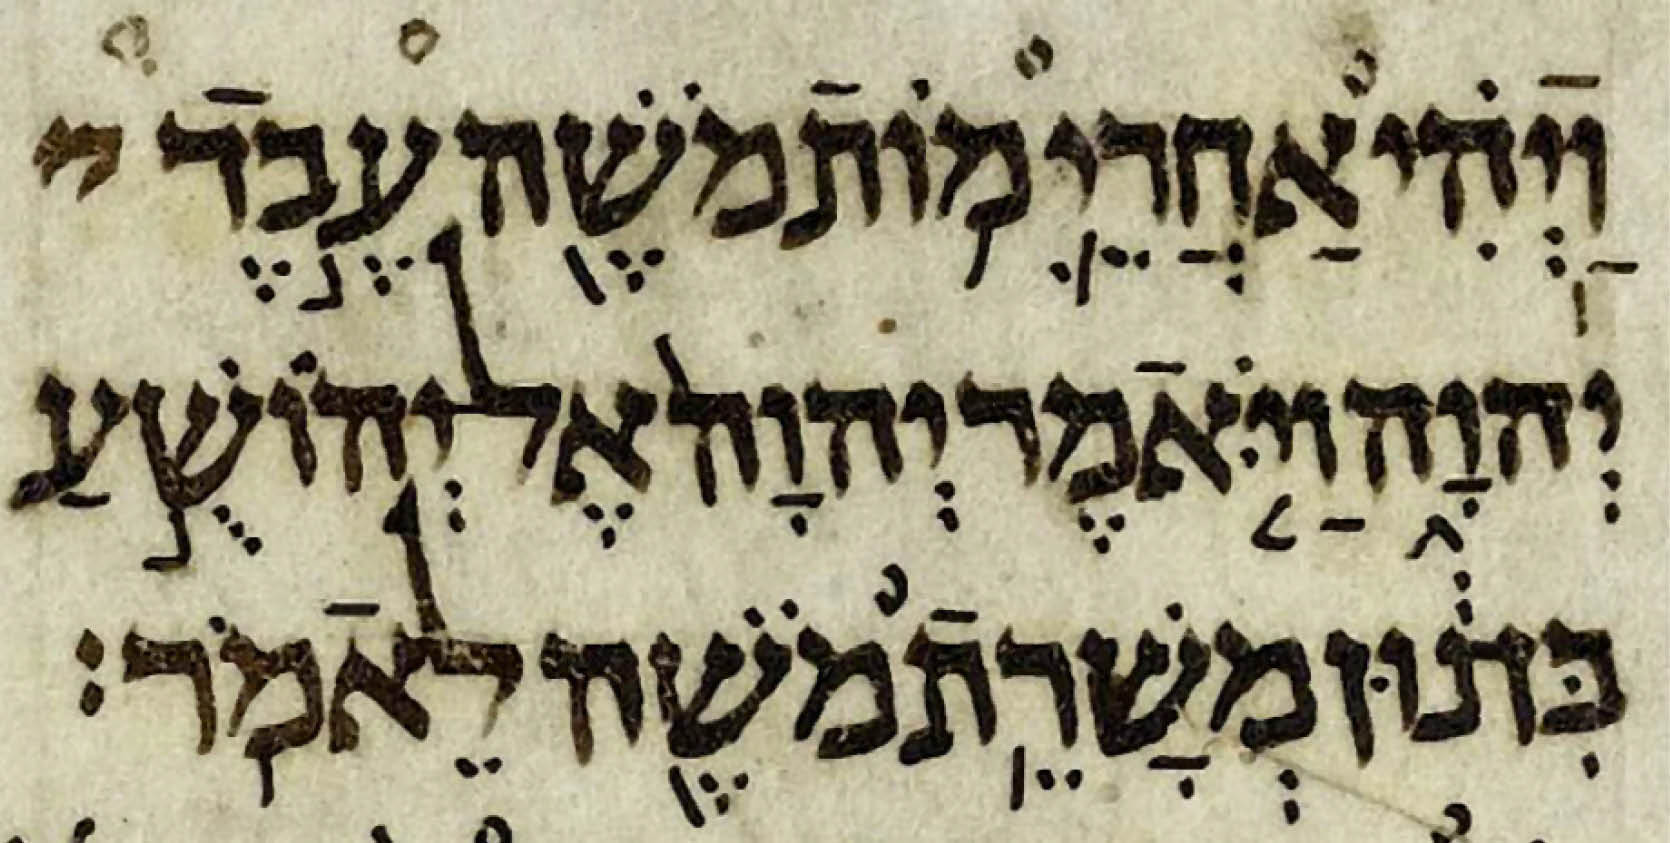 וַֽיְהִ֗י אַחֲרֵ֛י מ֥וֹת מֹשֶׁ֖ה עֶ֣בֶד י
יְהוָ֑ה וַיֹּ֤אמֶר יְהוָה֙ אֶל יְהוֹשֻׁ֣עַ
בִּן נ֔וּן מְשָׁרֵ֥ת מֹשֶׁ֖ה לֵאמֹֽר׃